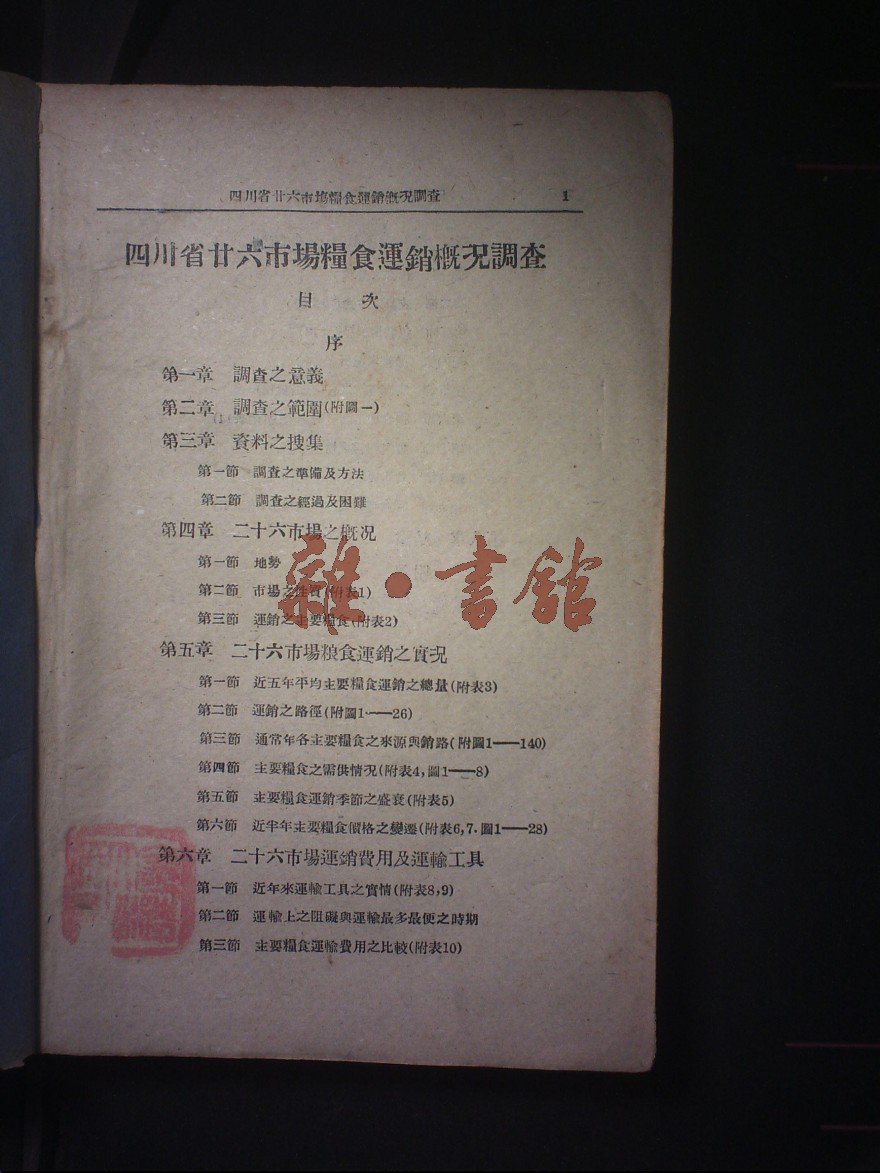 四川省廿六市場糧食運銷概況調查 1
四川省廿六市場糧食運銷概況調查
目 次
序
第一章 調查之意義
第二章 調查之範圍(附圖一)
第三章 資料之搜集
第一節 調查之準備及方法
第二節 調查之經過及困難
第四章 二十六市場之概況
第一節 地勢
第二節 市場之性質(附表1)
第三節 運銷之主要糧食(附表2)
雜·書館
第五章 二十六市場粮食運銷之實況
第一節 近五年平均主要糧食運銷之總量(附表3)
第二節 運銷之路徑(附圖1——26)
第三節 通常年各主要糧食之來源與銷路(附圖1——140)
第四節 主要糧食之需供情況(附表4,圖1——8)
第五節 主要糧食運銷季節之盛衰(附表5)
第六節 近半年主要糧食價格之變遷(附表6,7.圖1——28)
第六章 二十六市場運銷費用及運輸工具
第一節 近年來運輸工具之實情(附表8,9)
第二節 運輸上之阻礙與運輸最多最便之時期
第三節 主要糧食運輸費用之比較(附表10)